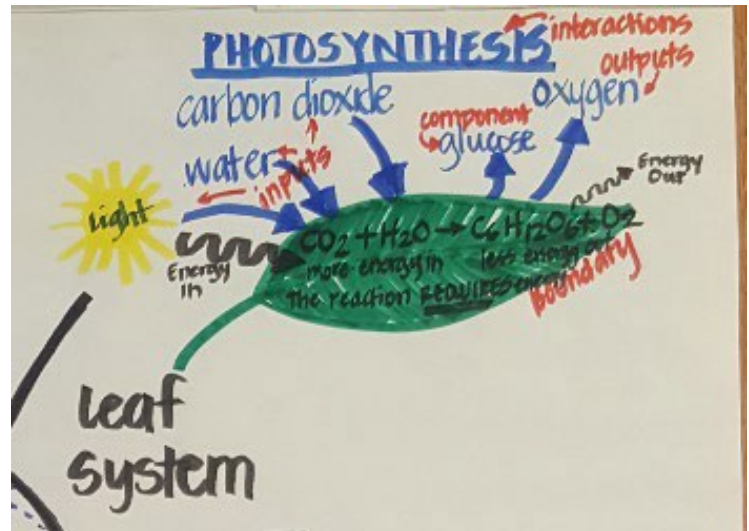 PHOTOSYNTHESIS
interactions
outputs
carbon dioxide
oxygen
component
glucose
water
inputs
Energy
Out
light
Energy
In
CO2 + H2O → C6H12O6 + O2
more energy in
less energy out
the reaction REQUIRES energy
boundary
leaf
system